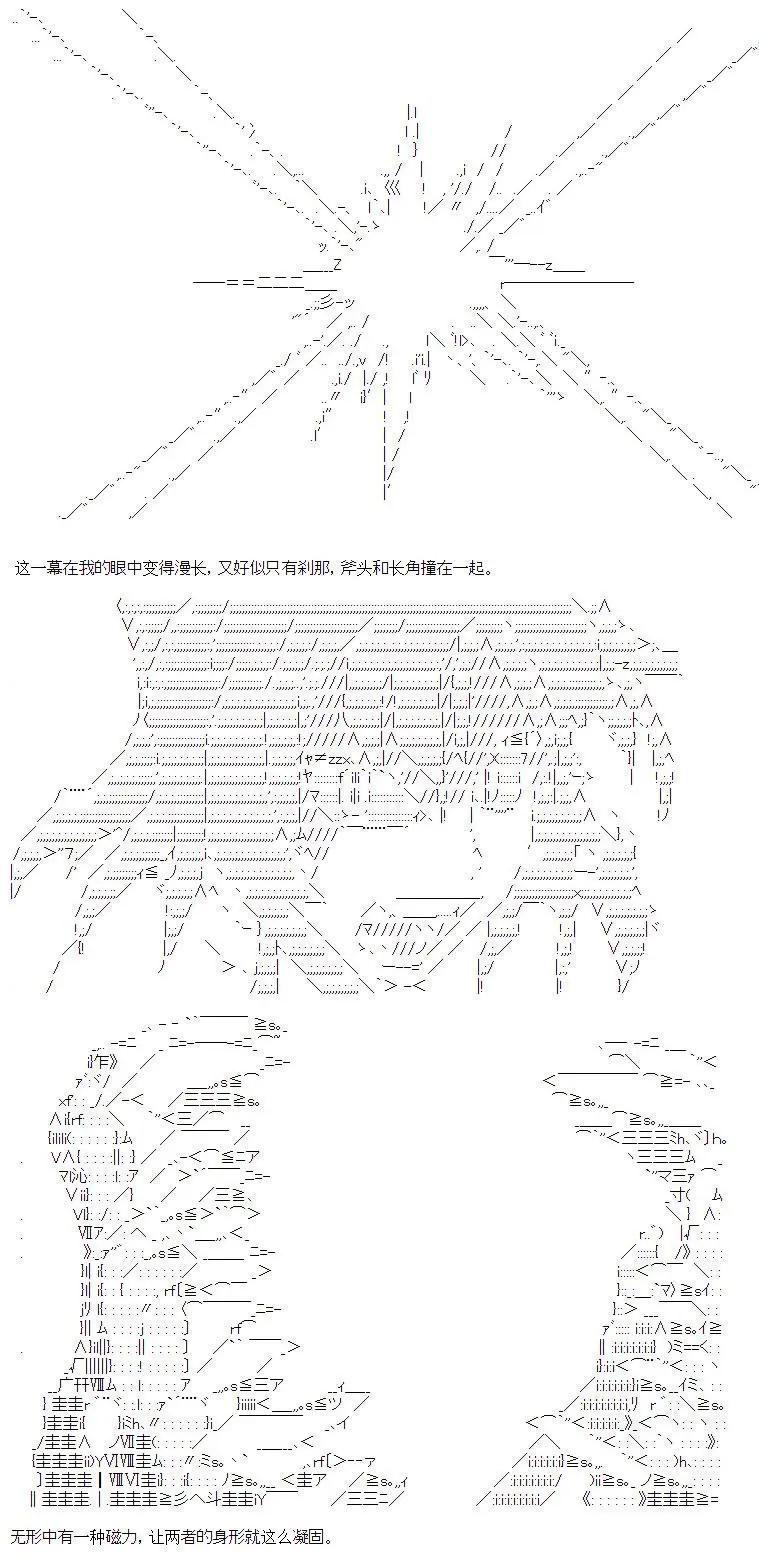 这一幕在我的眼中变得漫长，又好似只有刹那，斧头和长角撞在一起。
无形中有一种磁力，让两者的身形就这么凝固。